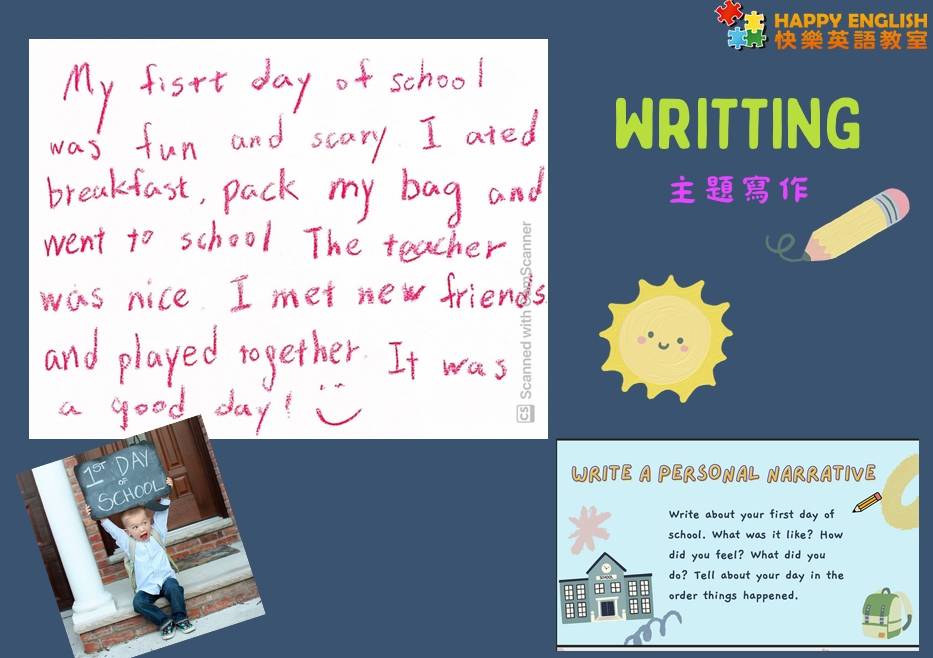 HAPPY ENGLISH
快樂英語教室
My fisrt day of school
was fun and scary. I ated
breakfast, pack my bag and
went to school The teacher
was nice. I met new friends
and played together. It was
a good day!
CS Scanned with CamScanner
WRITTING
主題寫作
1ST DAY
OF
SCHOOL
WRITE A PERSONAL NARRATIVE
Write about your first day of
school. What was it like? How
did you feel? What did you
do? Tell about your day in the
order things happened.
SCHOOL